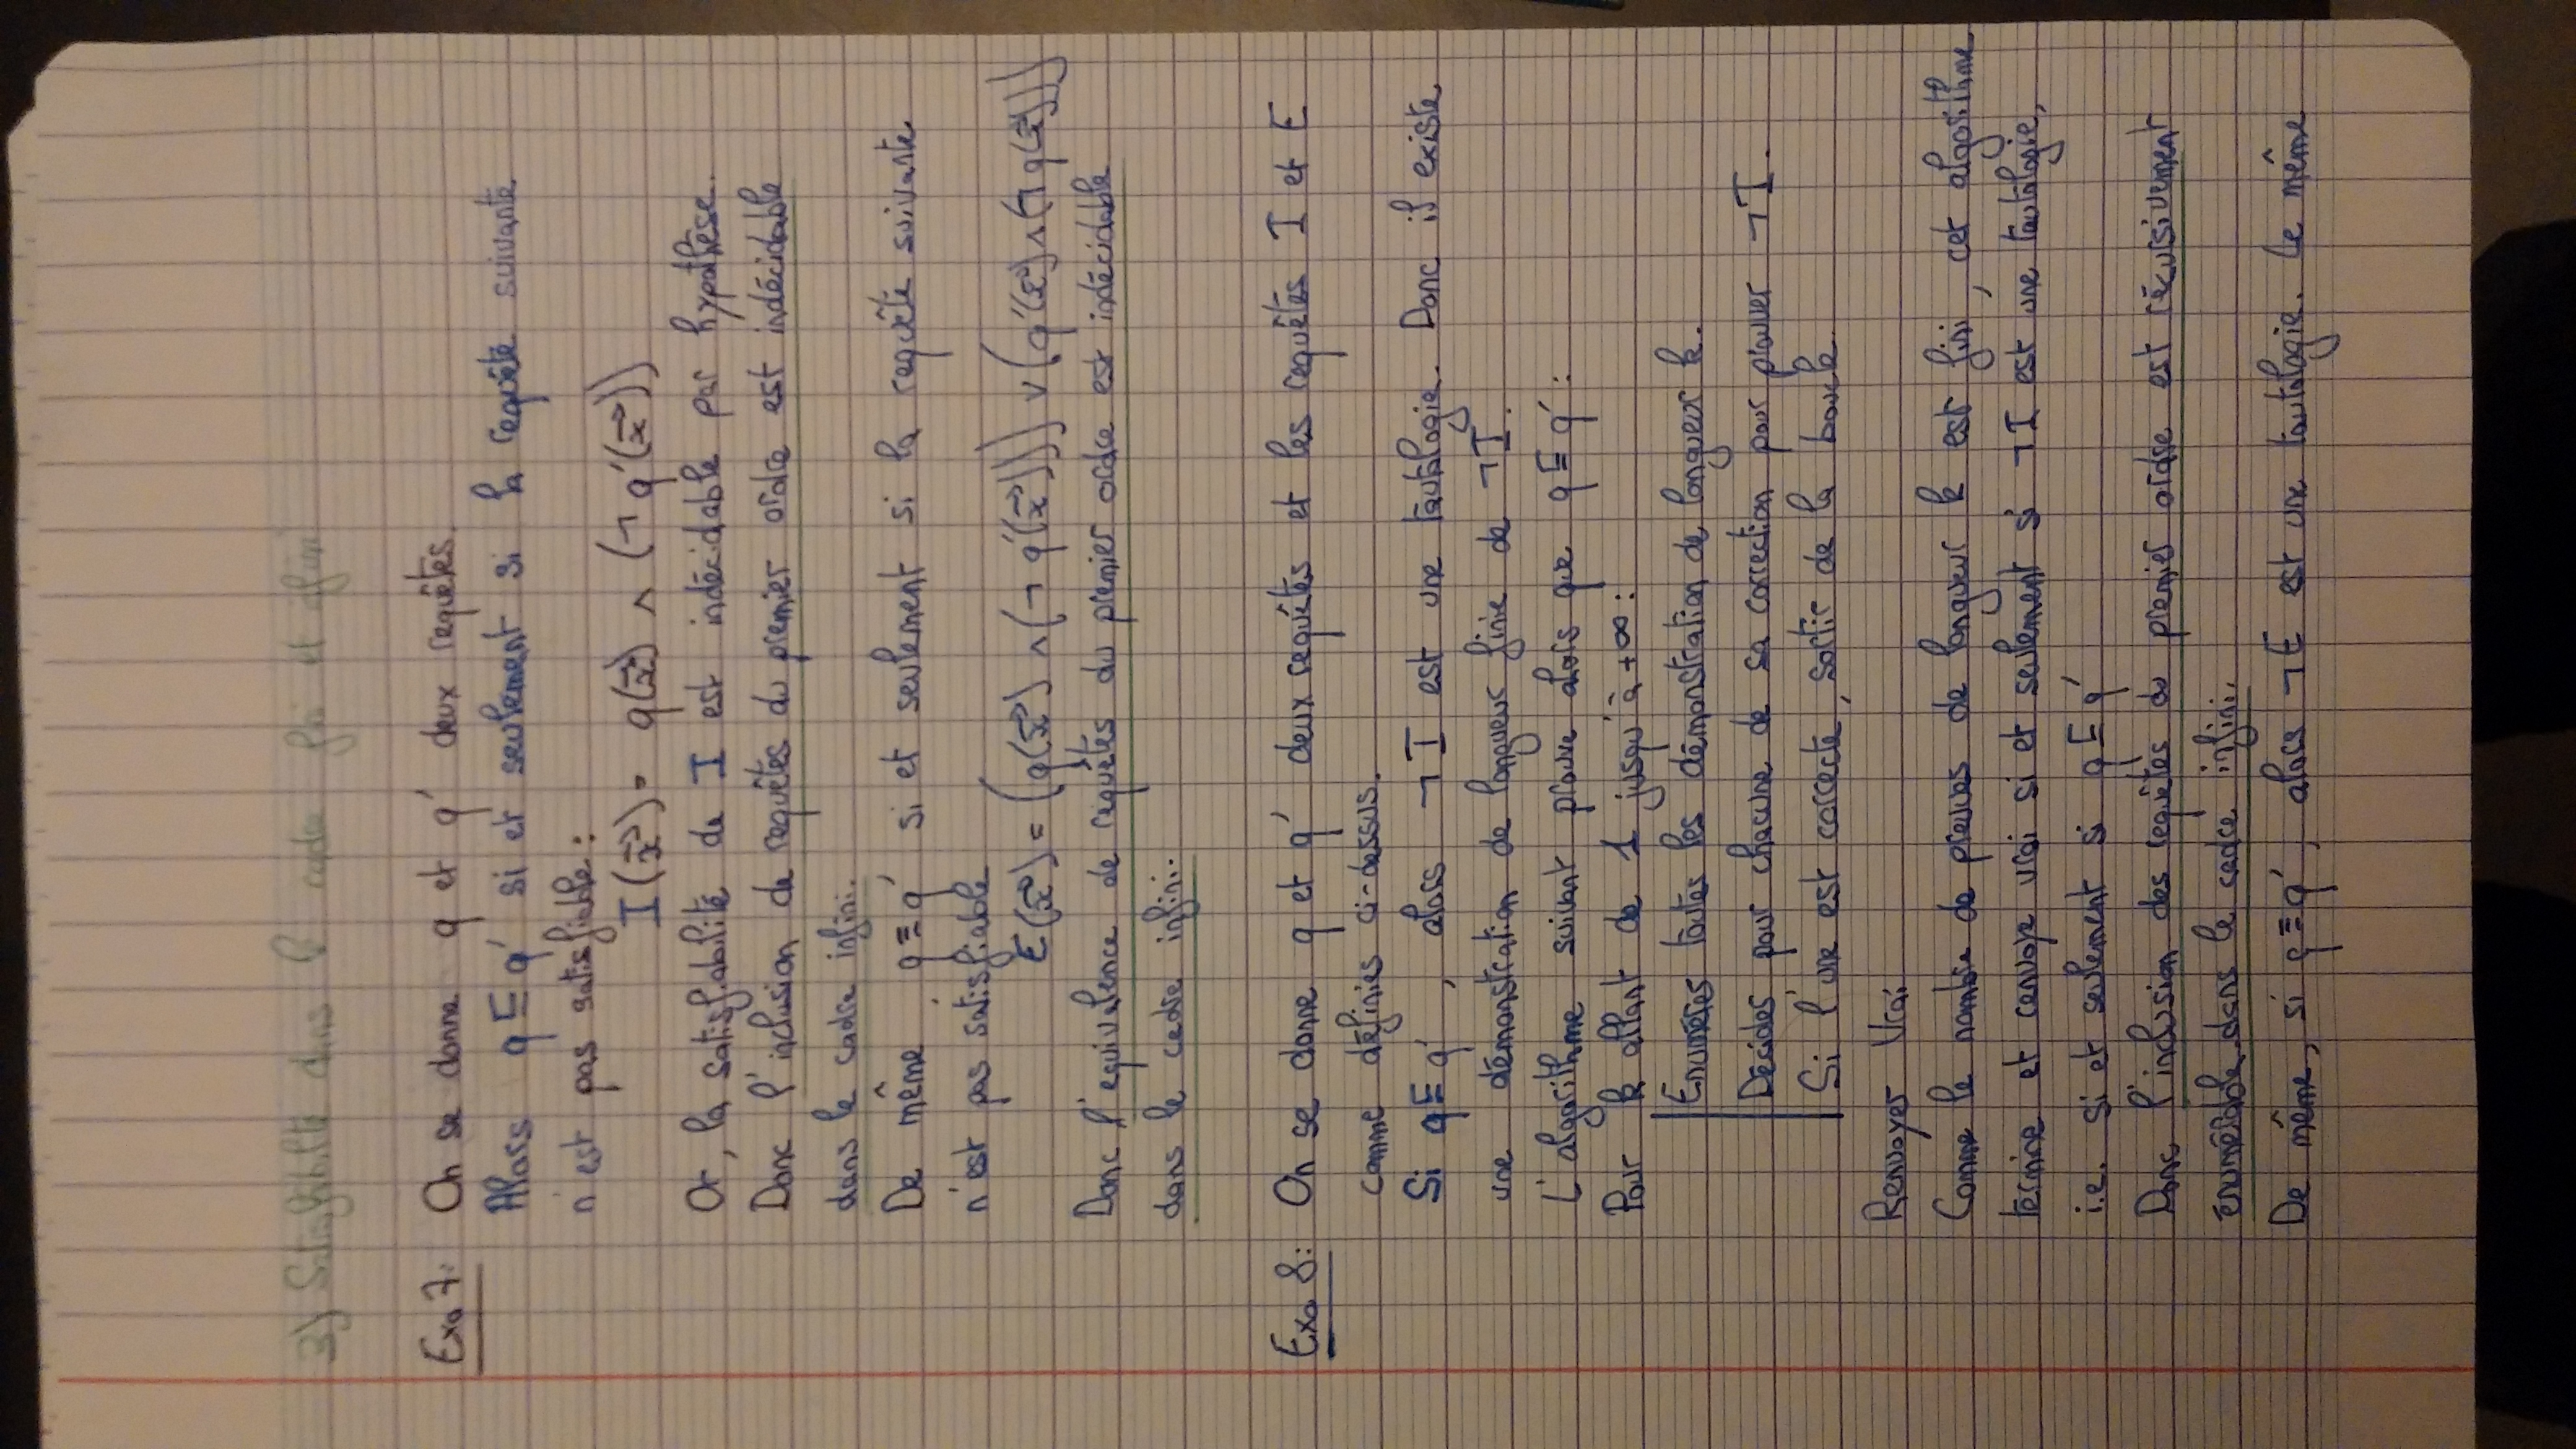 3) Satisfiabilité dans le cadre fini et infini
Exo 7: On se donne q et q' deux requêtes.
Alors q ⊑ q' si et seulement si la requête suivante
n'est pas satisfiable :
I(x⃗) = q(x⃗) ∧ (¬ q'(x⃗))
Or, la satisfiabilité de I est indécidable par hypothèse.
Donc l'inclusion de requêtes du premier ordre est indécidable
dans le cadre infini.
De même, q ≡ q' si et seulement si la requête suivante
n'est pas satisfiable
E(x⃗) = (q(x⃗) ∧ (¬ q'(x⃗))) ∨ (q'(x⃗) ∧ (¬ q(x⃗)))
Donc l'équivalence de requêtes du premier ordre est indécidable
dans le cadre infini.
Exo 8: On se donne q et q' deux requêtes et les requêtes I et E
comme définies ci-dessus.
Si q ⊑ q', alors ¬I est une tautologie. Donc il existe
une démonstration de longueur finie de ¬I.
L'algorithme suivant prouve alors que q ⊑ q' :
Pour k allant de 1 jusqu'à +∞ :
Enumérer toutes les démonstration de longueur k.
Décider, pour chacune de sa correction pour prouver ¬I.
Si l'une est correcte, sortir de la boucle
Renvoyer Vrai
Comme le nombre de preuves de longueur k est fini, cet algorithme
termine et renvoye vrai si et seulement si ¬I est une tautologie,
i.e. si et seulement si q ⊑ q'
Donc l'inclusion des requêtes du premier ordre est récursivement
énumérable dans le cadre infini.
De même, si q ≡ q', alors ¬E est une tautologie. Le même